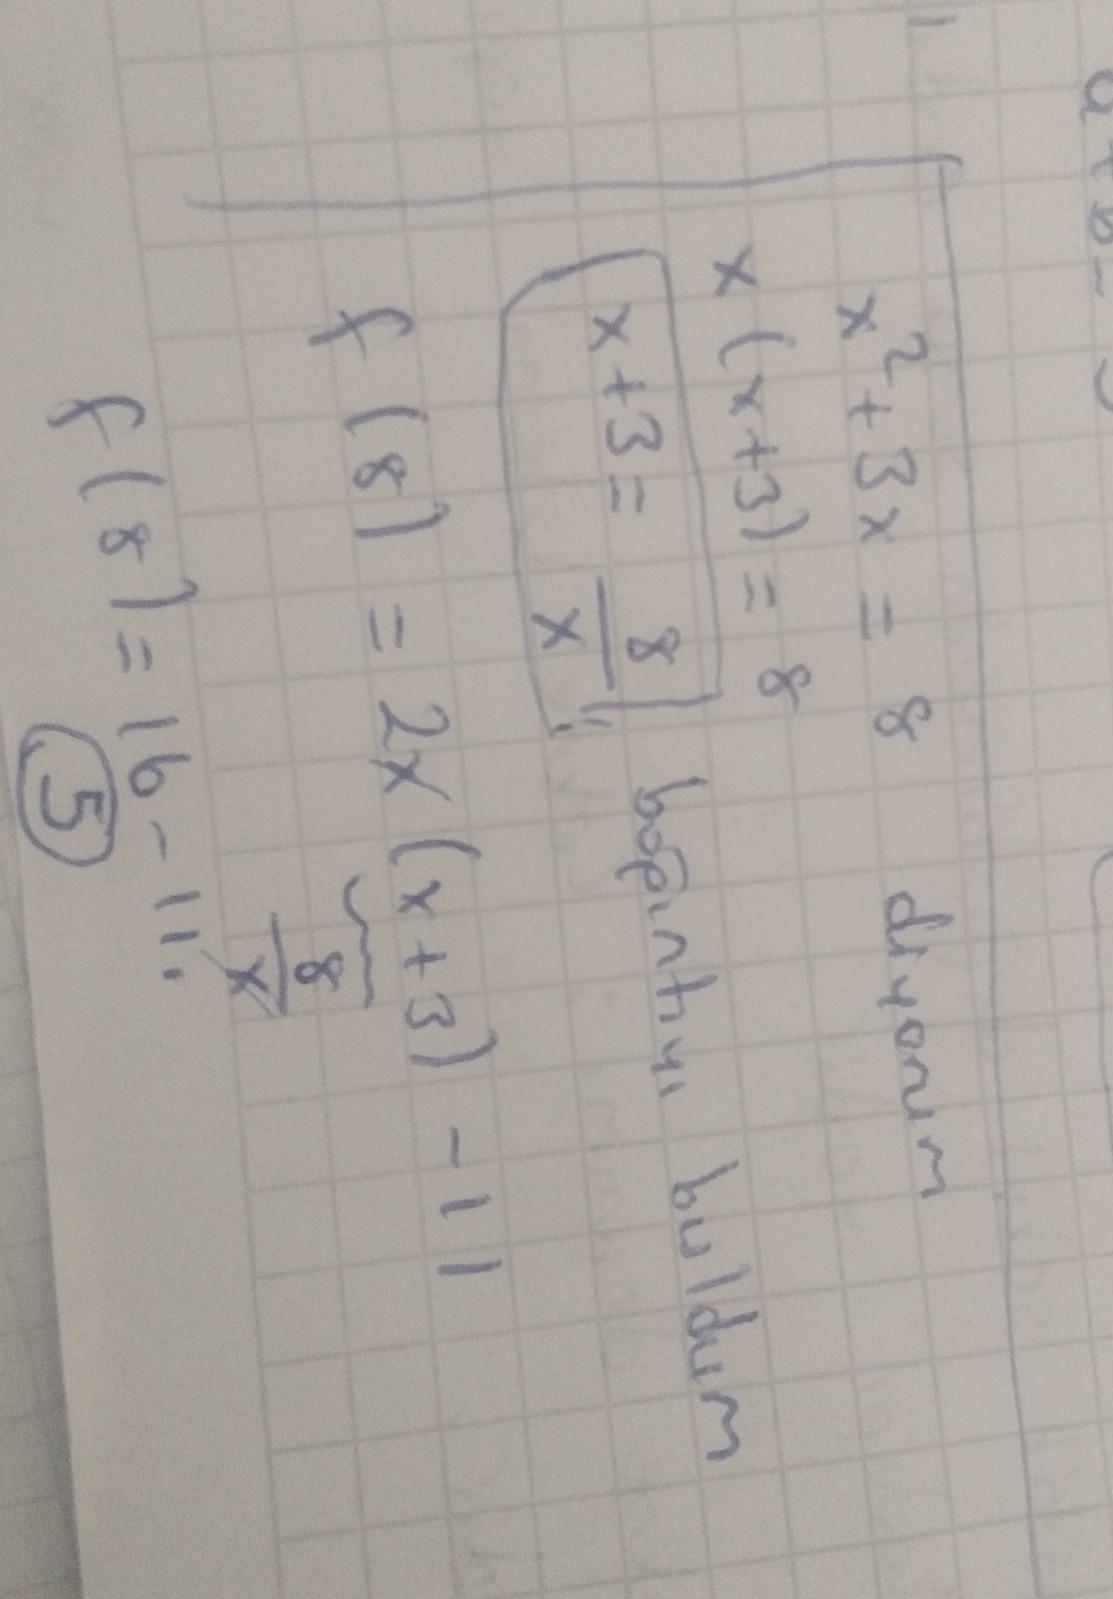 a+b=
x² + 3x = 8 diyorum
x (x+3) = 8
x+3 = 8/x bağıntıyı buldum
f (8) = 2x (x+3) - 11
8/x
f (8) = 16 - 11
5